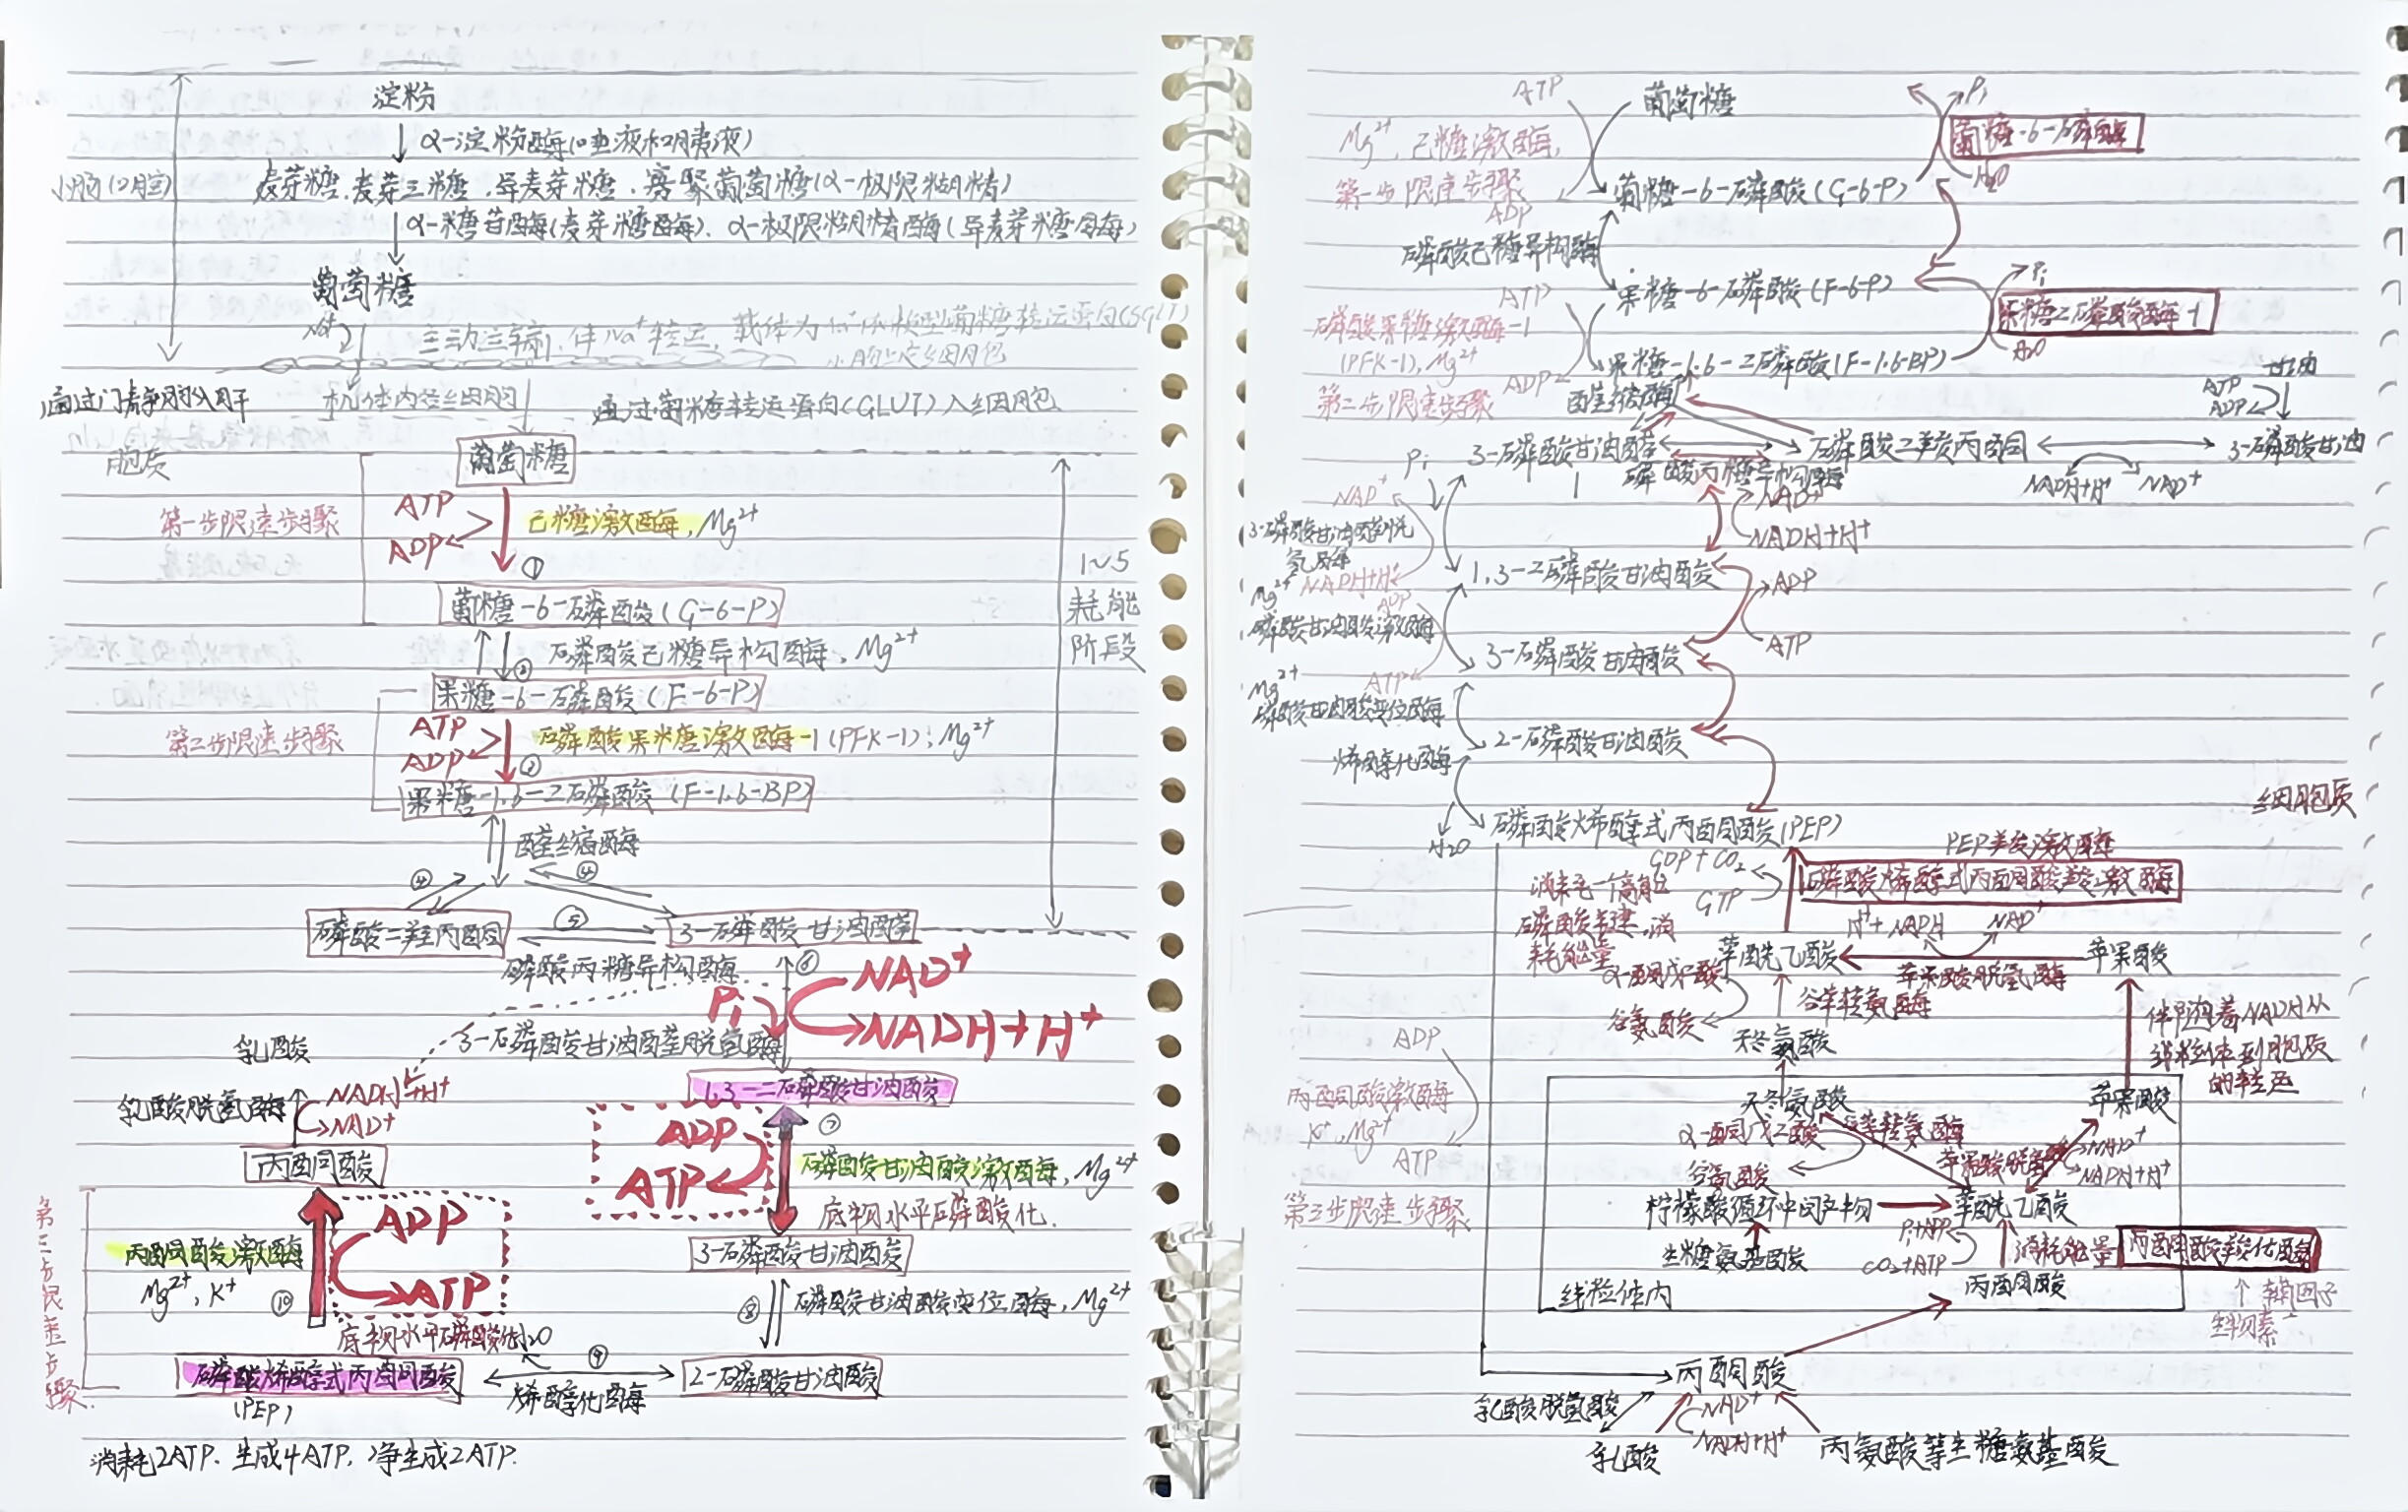 淀粉
α-淀粉酶(唾液和胰液)
小肠(口腔)
麦芽糖.麦芽三糖.异麦芽糖.寡聚葡萄糖(α-极限糊精)
α-糖苷酶(麦芽糖酶).α-极限糊精酶(异麦芽糖酶)
葡萄糖
Na⁺
主动运输,伴Na⁺转运,载体为Na⁺依赖型葡萄糖转运蛋白(SGLT)
小肠上皮细胞
通过门静脉入肝
机体内经细胞
通过葡萄糖转运蛋白(GLUT)入细胞
胞质
葡萄糖
第一步限速步骤
ATP
ADP
己糖激酶,Mg²⁺
①
1~5
耗能
阶段
葡糖-6-磷酸(G-6-P)
磷酸己糖异构酶,Mg²⁺
果糖-6-磷酸(F-6-P)
第二步限速步骤
ATP
ADP
磷酸果糖激酶-1(PFK-1),Mg²⁺
果糖-1.6-二磷酸(F-1.6-BP)
醛缩酶
④
④
磷酸二羟丙酮
⑤
3-磷酸甘油醛
磷酸丙糖异构酶
⑥
NAD⁺
Pi
NADH+H⁺
3-磷酸甘油醛脱氢酶
乳酸
1,3-二磷酸甘油酸
乳酸脱氢酶
NADH+H⁺
NAD⁺
ADP
ATP
⑦
磷酸甘油酸激酶,Mg²⁺
底物水平磷酸化.
丙酮酸
第三步限速步骤.
丙酮酸激酶
Mg²⁺,K⁺
⑩
ADP
ATP
底物水平磷酸化
H₂O
3-磷酸甘油酸
⑧
磷酸甘油酸变位酶,Mg²⁺
磷酸烯醇式丙酮酸
(PEP)
⑨
烯醇化酶
2-磷酸甘油酸
消耗2ATP.生成4ATP,净生成2ATP.
ATP
葡萄糖
Pi
葡糖-6-磷酸酶
Mg²⁺,己糖激酶,
第一步限速步骤
ADP
葡糖-6-磷酸(G-6-P)
H₂O
磷酸己糖异构酶
ATP
果糖-6-磷酸(F-6-P)
Pi
磷酸果糖激酶-1
(PFK-1),Mg²⁺
果糖二磷酸酶-1
H₂O
ADP
果糖-1.6-二磷酸(F-1.6-BP)
第二步限速步骤
醛缩酶
甘油
ATP
ADP
Pi
3-磷酸甘油醛
磷酸二羟丙酮
3-磷酸甘油
磷酸丙糖异构酶
NADH+H⁺
NAD⁺
NAD⁺
NAD⁺
3-磷酸甘油醛脱
氢酶
NADH+H⁺
NADH+H⁺
1,3-二磷酸甘油酸
Mg²⁺
ADP
磷酸甘油酸激酶
ADP
ATP
3-磷酸甘油酸
ATP
Mg²⁺
磷酸甘油酸变位酶
2-磷酸甘油酸
烯醇化酶
细胞质
H₂O
磷酸烯醇式丙酮酸(PEP)
PEP羧激酶
GDP+CO₂
GTP
磷酸烯醇式丙酮酸羧激酶
消耗一个高能
磷酸键,消
耗能量
H⁺+NADH
NAD⁺
草酰乙酸
苹果酸脱氢酶
苹果酸
α-酮戊二酸
谷氨酸
谷草转氨酶
伴随着NADH从
线粒体到胞质
的转运
天冬氨酸
ADP
丙酮酸激酶
K⁺,Mg²⁺
ATP
第三步限速步骤
天冬氨酸
苹果酸
α-酮戊二酸
谷草转氨酶
谷氨酸
苹果酸脱氢酶
NAD⁺
NADH+H⁺
柠檬酸循环中间产物
草酰乙酸
生糖氨基酸
Pi+ADP
CO₂+ATP
消耗能量
丙酮酸羧化酶
丙酮酸
线粒体内
↑辅因子
生物素
丙酮酸
乳酸脱氢酸
NAD⁺
NADH+H⁺
乳酸
丙氨酸等生糖氨基酸